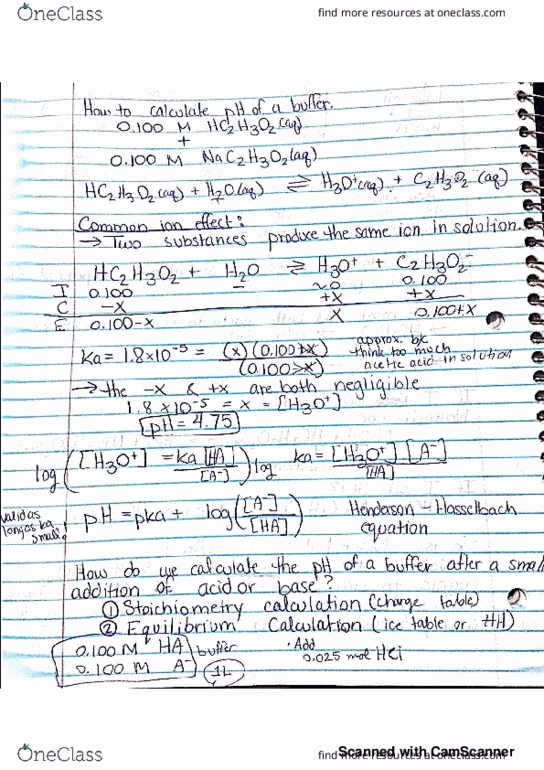 OneClass
find more resources at oneclass.com
How to calculate pH of a buffer.
0.100 M HC2H3O2 (aq)
+
0.100 M NaC2H3O2(aq)
HC2H3O2 (aq) + H2O(aq) ⇌ H3O+(aq) + C2H3O2- (aq)
Common ion effect:
→ Two substances produce the same ion in solution.
HC2H3O2 + H2O ⇌ H3O+ + C2H3O2-
I 0.100 – ~0 0.100
C -x +x +x
E 0.100-x x 0.100+x
Ka = 1.8x10-5 = (x)(0.100+x)
(0.100-x)
approx. b/c
think too much
acetic acid in solution
→ the -x & +x are both negligible
1.8x10-5 = x = [H3O+]
pH = 4.75
log([H3O+] = ka [HA]/[A-]) log ka = [H3O+][A-]/[HA]
valid as
long as ka
small!
pH = pka + log([A-]/[HA]) Henderson-Hasselbach
equation
How do we calculate the pH of a buffer after a small
addition of acid or base?
① Stoichiometry calculation (change table)
② Equilibrium Calculation (ice table or HH)
0.100 M HA
0.100 M A-
buffer
1L
• Add
0.025 mol HCl
OneClass
find more resources at oneclass.com
Scanned with CamScanner